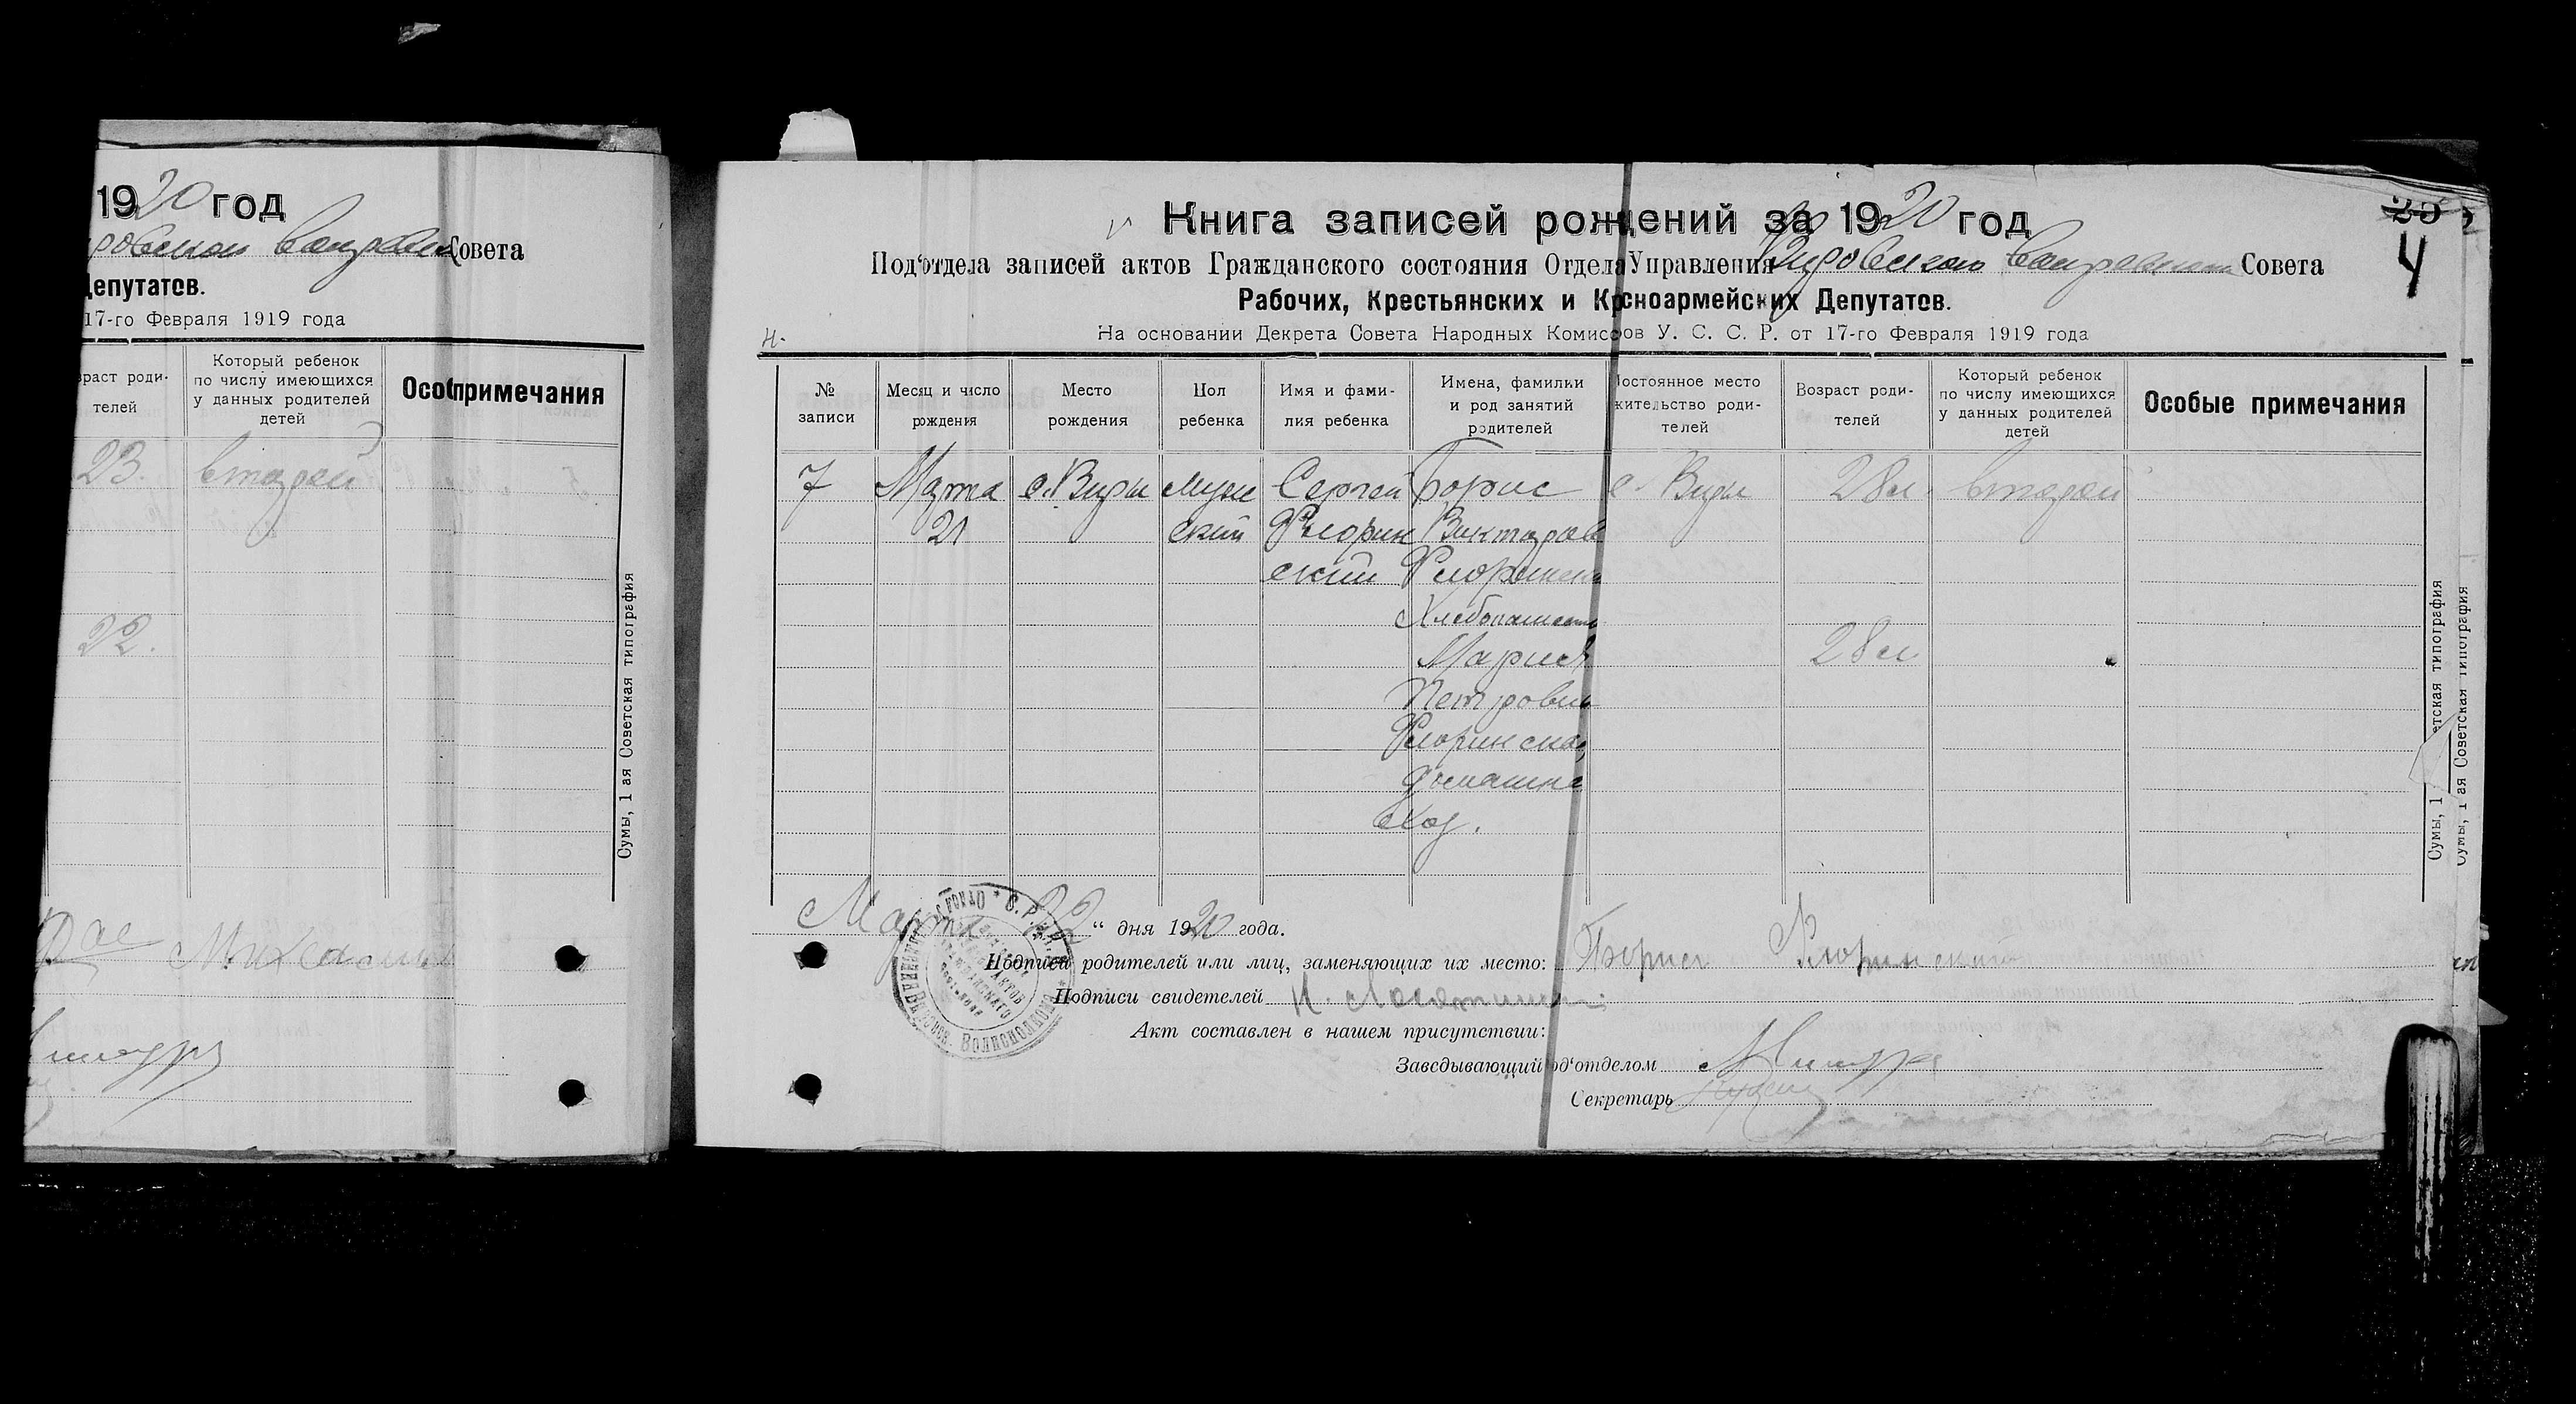 1920 год
Совета
Депутатов.
17-го Февраля 1919 года
раст роди-
телей
Который ребенок
по числу имеющихся
у данных родителей
детей
Особ примечания
23. второй
22.
Сумы, 1 ая Советская типография
Книга записей рождений за 1920 год
Под'отдела записей актов Гражданского состояния Отдела Управления Вировского Совета
Рабочих, Крестьянских и Крсноармейских Депутатов.
На основании Декрета Совета Народных Комиссров У. С. С. Р. от 17-го Февраля 1919 года
25
4
№
записи
Месяц и число
рождения
Место
рождения
Пол
ребенка
Имя и фами-
лия ребенка
Имена, фамилии
и род занятий
родителей
Постоянное место
жительство роди-
телей
Возраст роди-
телей
Который ребенок
по числу имеющихся
у данных родителей
детей
Особые примечания
7 Марта с. Виры муж Сергей Борис с. Виры 28 л. второй
21 ский Флорин Викторов
ский Флоринск
Хлебопашест
Мария 28 л
Петровна
Флоринская
домашне
хоз.
Сумы, 1 етская типография
Сумы, 1 ая Советская типография
Марта 22 “ дня 1920 года.
Подписи родителей или лиц, заменяющих их место: Борис Флоринский
Подписи свидетелей Н.
Акт составлен в нашем присутствии:
Заведывающий под'отделом
Секретарь